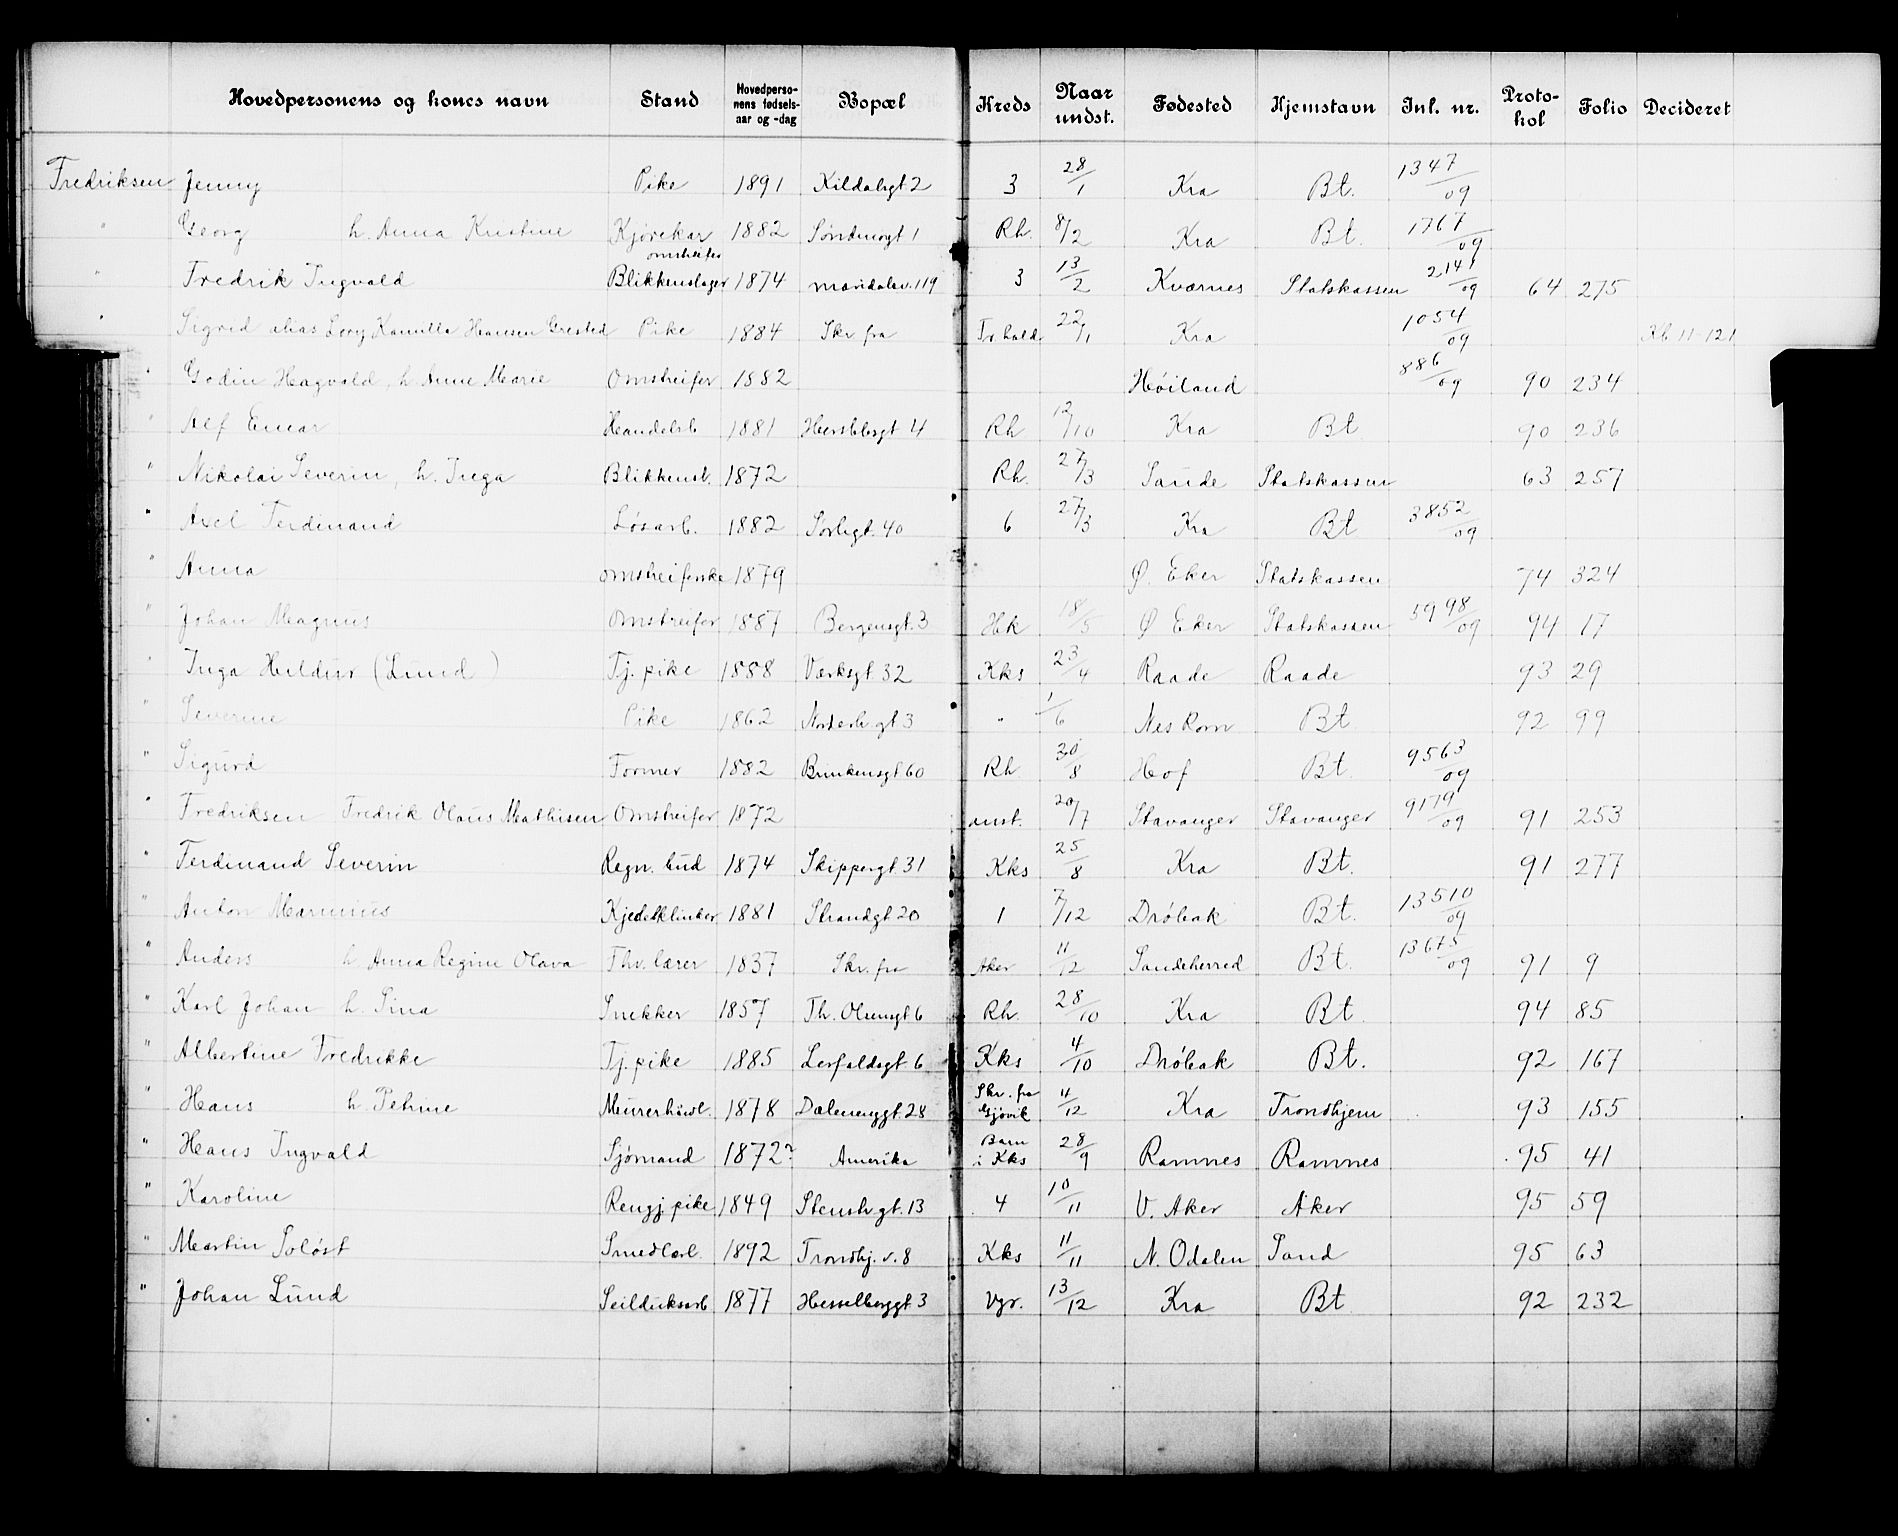 Hovedpersonens og kones navn Stand Hovedperso-nens fødsels-aar og -dag Bopæl Kreds Naar undst. Fødested Hjemstavn Inl. nr. Proto-kol Folio Decideret
Fredriksen Jenny Pike 1891 Kildalsgt 2 3 28/1 Kra Bt. 1347/09
" Georg h. Anna Kristine Kjørekar 1882 Søndmørgt 1 Rh. 8/2 Kra Bt. 1767/09
" Fredrik Ingvald omstreifer Blikkenslager 1874 maridalsv. 119 3 13/2 Kværnes Statskassen 2141/09 64 275
" Sigrid alias Lovy Kamilla Hansen Grested Pike 1884 Skr fra Fr.hald. 22/1 Kra 1054/09 Kb 11-121
" Godin Hagvald, h. Anne Marie Omstreifer 1882 Høiland 886/09 90 234
" Alf Einar Handelsb. 1881 Herslebsgt 4 Rh 12/10 Kra Bt 90 236
" Nikolai Severin, h. Inga Blikkensl. 1872 Rh. 27/3 Sande Statskassen 63 257
" Axel Ferdinand Løsarb. 1882 Sorligt. 40 6 27/3 Kra Bt 3852/09
" Anna omstreiferske 1879 Ø. Eker Statskassen 74 324
" Johan Magnus Omstreifer 1887 Bergensgt. 3 Hk 18/5 Ø Eker Statskassen 5998/09 94 17
" Inga Hildur (Lund) Tj. pike 1888 Værksgt 32 Kks 23/4 Raade Raade 93 29
" Severine Pike 1862 Norderh.gt 3 " 1/6 Nes Rom Bt 92 99
" Sigurd Former 1882 Brinkensgt 60 Rh. 30/8 Hof Bt. 9563/09
" Fredriksen Fredrik Olaus Mathisen Omstreifer 1872 anst. 20/7 Stavanger Stavanger 9179/09 91 253
" Ferdinand Severin Regn. bud 1874 Skippergt. 31 Kks 25/8 Kra Bt. 91 277
" Anton Marinius Kjedeklinker 1881 Strandgt 20 1 7/12 Drøbak Bt. 13510/09
" Anders h. Anna Regine Olava Fhv. lærer 1837 Skr. fra Aker 11/12 Sandeherred Bt. 13675/09 91 9
" Karl Johan h. Sina Snekker 1857 Th. Olsensgt 6 Rh. 28/10 Kra Bt 94 85
" Albertine Fredrikke Tj. pike 1885 Lerfaldsgt 6 Kks 4/10 Drøbak Bt. 92 167
" Hans h. Petrine Murerhåndl. 1878 Dælenenggt. 28 Skr. fra Gjøvik 11/12 Kra Trondhjem 93 155
" Hans Ingvald Sjømand 1872? Amerika Barn i Kks 28/9 Ramnes Ramnes 95 41
" Karoline Rengj. pike 1849 Stensb.gt. 13 4 10/11 V. Aker Aker 95 59
" Martin Soløst Smedlærl. 1892 Trondhj. v. 8 Kks 11/11 N. Odalen Sand 95 63
" Johan Lund Seilduksarb 1877 Hesselberggt 3 Vgr. 13/12 Kra Bt 92 232